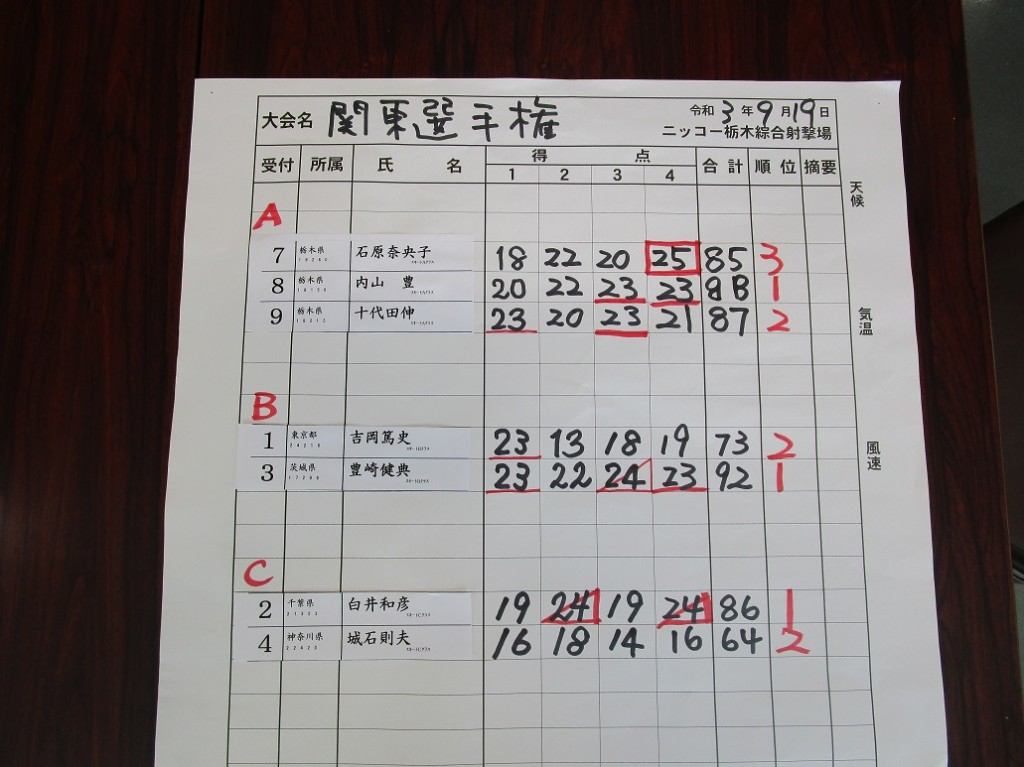 大会名 関東選手権 令和 3 年 9 月 19 日
ニッコー栃木綜合射撃場
受付 所属 氏 名 得 点 合計 順位 摘要
1 2 3 4
天候
A
7 栃木県 石原奈央子 18 22 20 25 85 3
8 栃木県 内山 豊 20 22 23 23 88 1
9 栃木県 十代田伸 23 20 23 21 87 2
気温
B
1 東京都 吉岡篤史 23 13 18 19 73 2
3 茨城県 豊崎健典 23 22 24 23 92 1
風速
C
2 千葉県 白井和彦 19 24 19 24 86 1
4 神奈川県 城石則夫 16 18 14 16 64 2